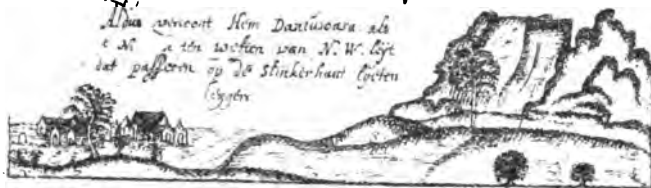 Aldus vertoont Hem Dantuwara als
t N a ten westen van N.W. leyt
dat passeren op de Slinkerhant lyeten
leggen